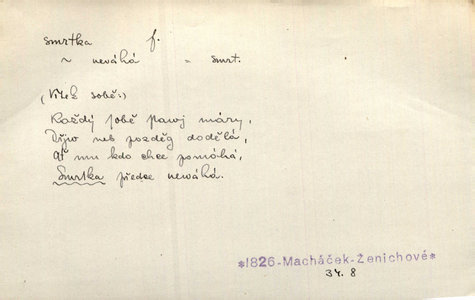 smrtka f.
~ neváhá = smrt.
(Vítek sobě:)
Každý sobě stawj máry,
Dřjw neb pozděg dodělá,
Ať mu kdo chce pomáhá,
Smrtka předce newáhá.
*1826-Macháček-Ženichové*
34. 8